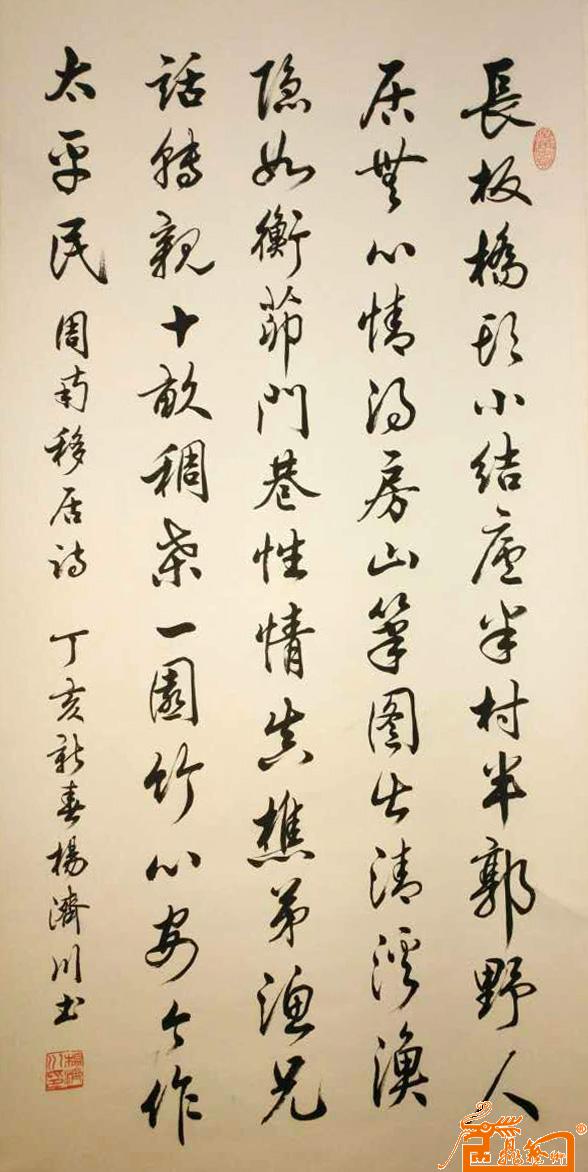 長板橋頭小結廬半村半郭野人
居無心情得房山筆圖出清溪漁
隐如衡茆門巷性情真樵弟漁兄
話轉親十畝稠桑一園竹心安今作
太平民 周南移居詩 丁亥新春楊濟川书